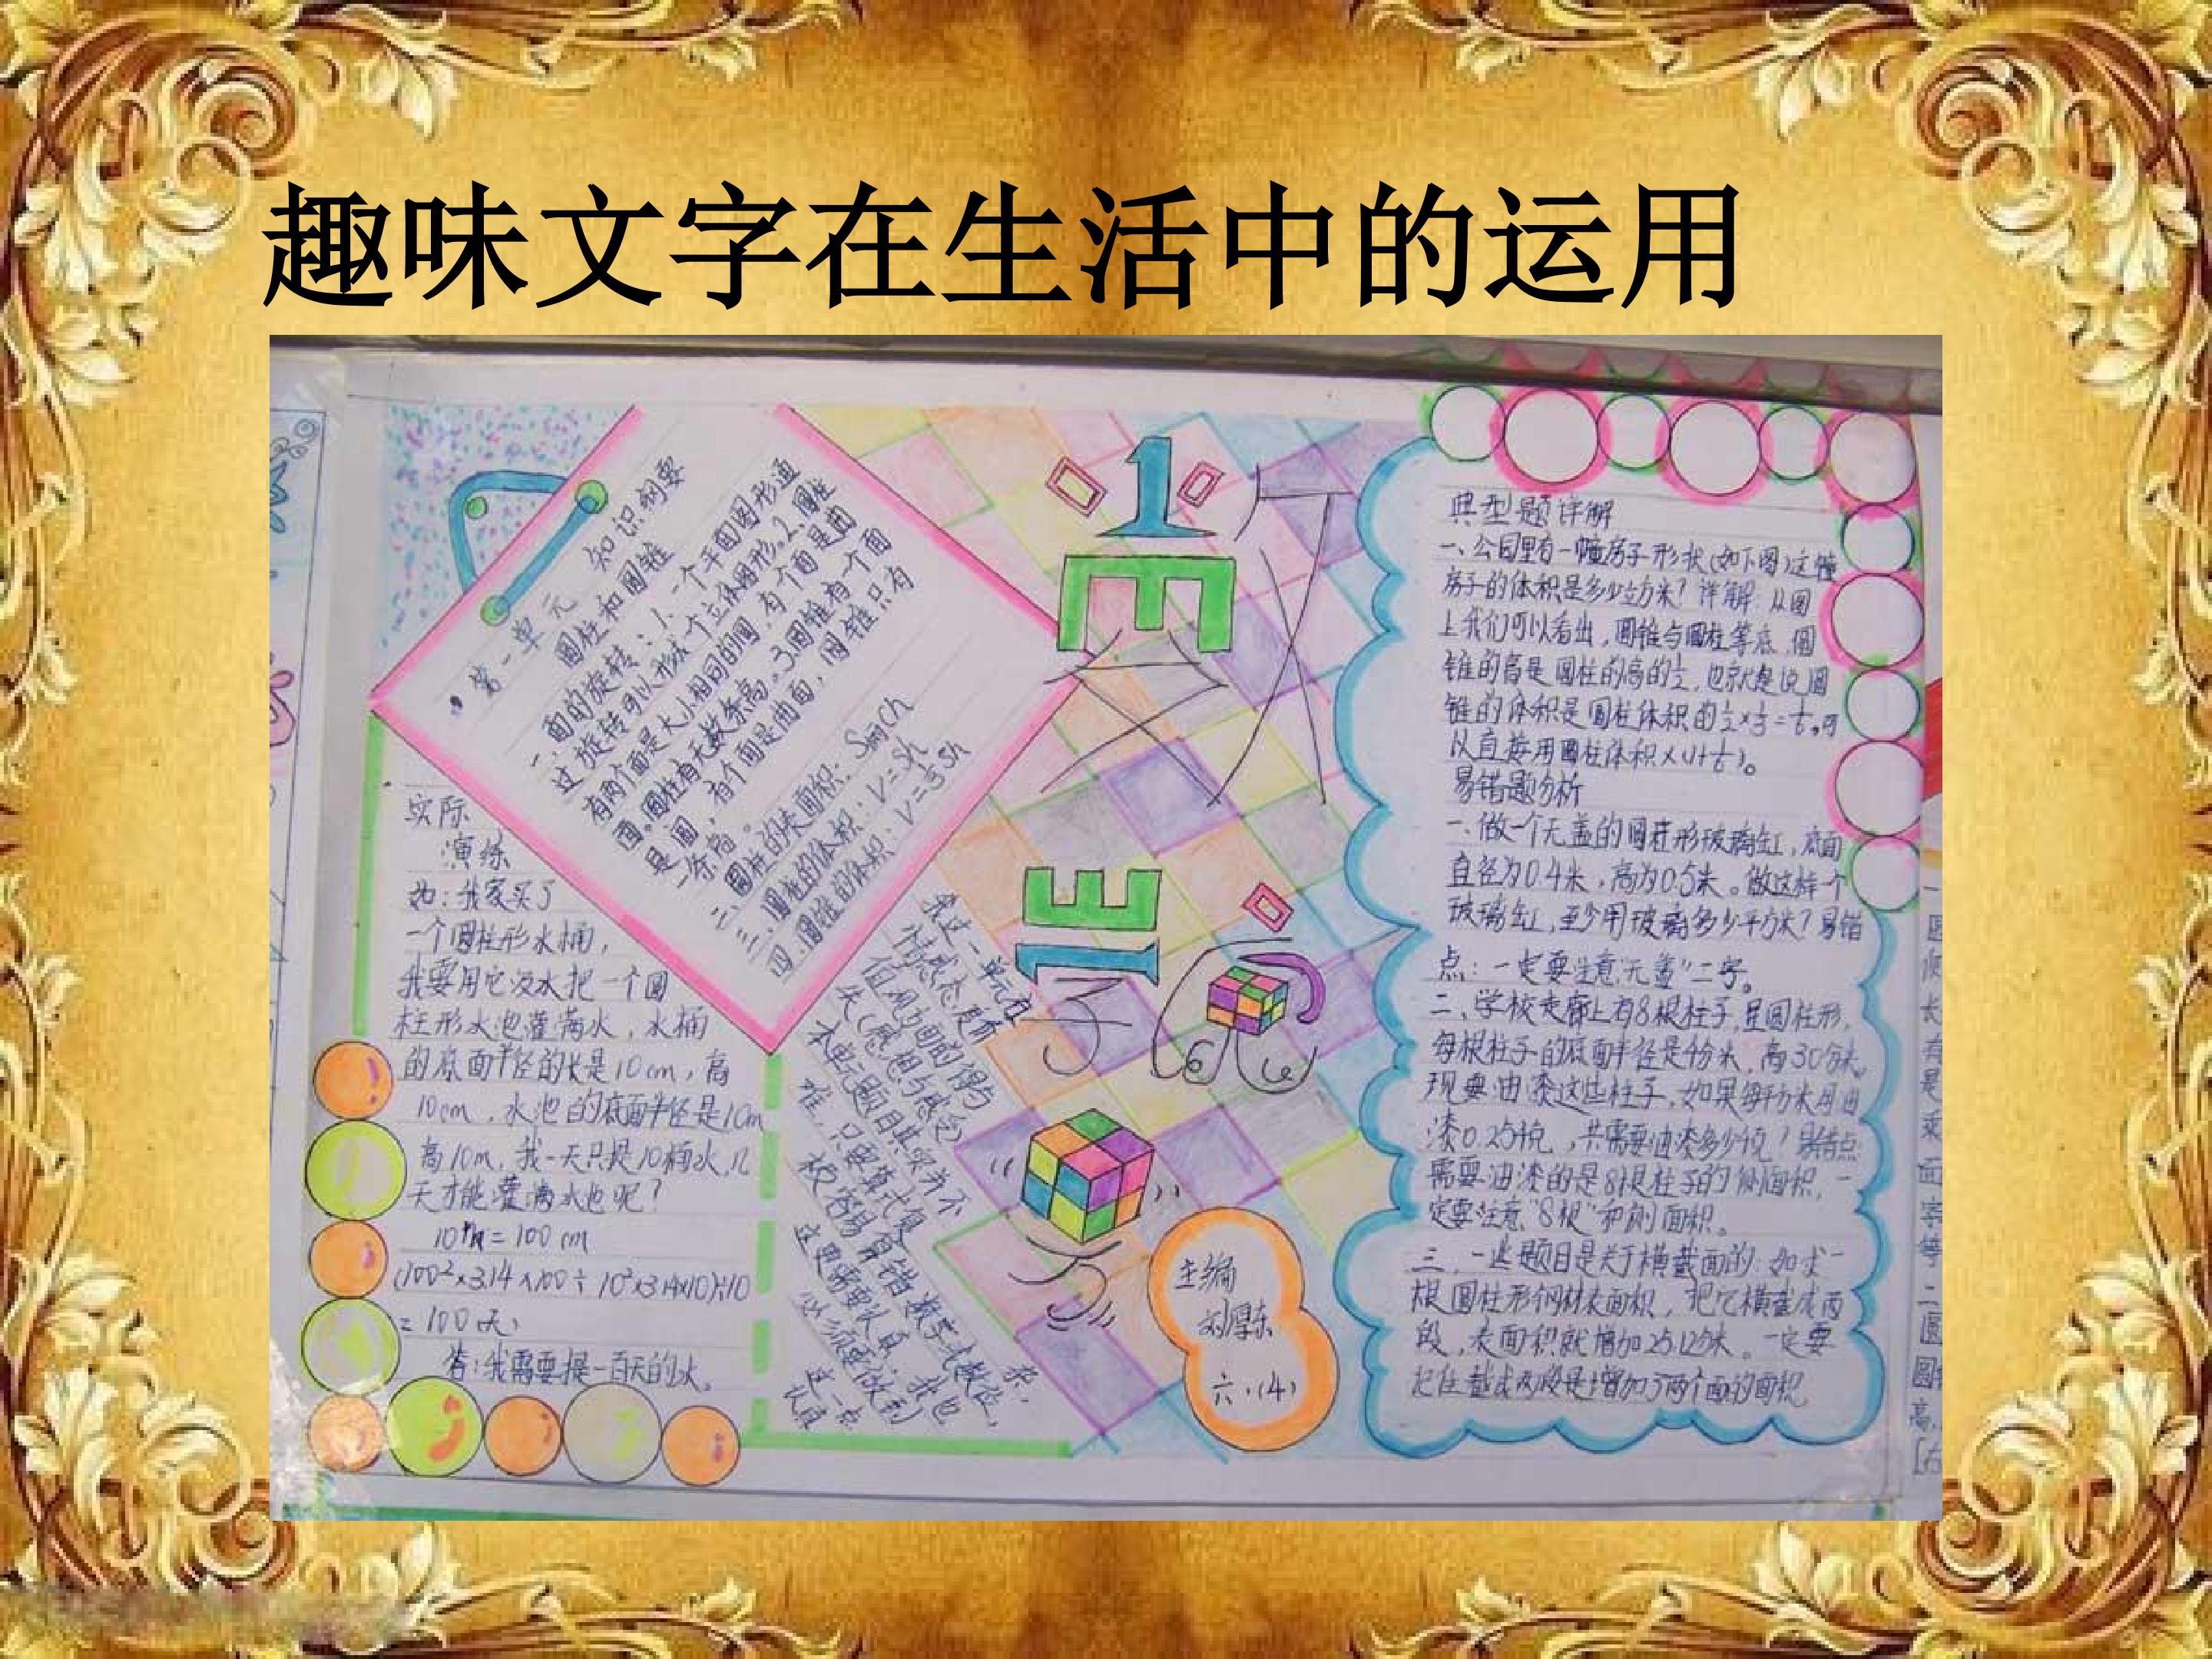 趣味文字在生活中的运用
第一单元 知识纲要
圆柱和圆锥
一、面的旋转：1、一个平面图形通
过旋转可以形成一个立体图形。2、圆柱
有两个面是大小相同的圆，有一个面是曲
面。圆柱有无数条高。3、圆锥有一个面
是圆，有个面是曲面，圆锥只有
一条高。
二、圆柱的表面积：
三、圆柱的体积：V=Sh
四、圆锥的体积：V=⅓Sh
实际
演练
如：我家买了
一个圆柱形水桶，
我要用它没水把一个圆
柱形水池灌满水，水桶
的底面半径的长是10cm，高
10cm，水池的底面半径是1Cm
高10m，我一天只提10桶水，几
天才能灌满水池呢？
= 100 cm
(100²×3.14×100÷10²×3.14×10)÷10
=100(天)
答：我需要提一百天的水。
我这一单元在
情感态度价
值观方面的得与
失(感想与感受)
本单元题目其实并不
难，只要算式复
杂，
校容易算错数字或数位，
这里需要认真，我也
必须要做到
这一点
认真
主编
刘厚东
六、(4)
典型题详解
一、公园里有一幢房子形状(如下图)这幢
房子的体积是多少立方米？详解：从图
上我们可以看出，圆锥与圆柱等底，圆
锥的高是圆柱的高的½，也就是说圆
锥的体积是圆柱体积的½×⅓=⅙，可
以直接用圆柱体积×(1+⅙)。
易错题分析
一、做一个无盖的圆柱形玻璃缸，底面
直径为0.4米，高为0.5米。做这样一个
玻璃缸，至少用玻璃多少平方米？易错
点：一定要注意“无盖”二字。
二、学校走廊上有8根柱子，呈圆柱形，
每根柱子的底面半径是4分米，高30分米，
现要油漆这些柱子，如果每平方米用油
漆0.25千克，共需要油漆多少千克？易错点
需要油漆的是8根柱子的侧面积，一
定要注意“8根”和侧面积。
三、一些题目是关于横截面的：如求一
根圆柱形钢材表面积，把它横截成两
段，表面积就增加25.12分米。一定要
记住截成两段是增加了两个面的面积